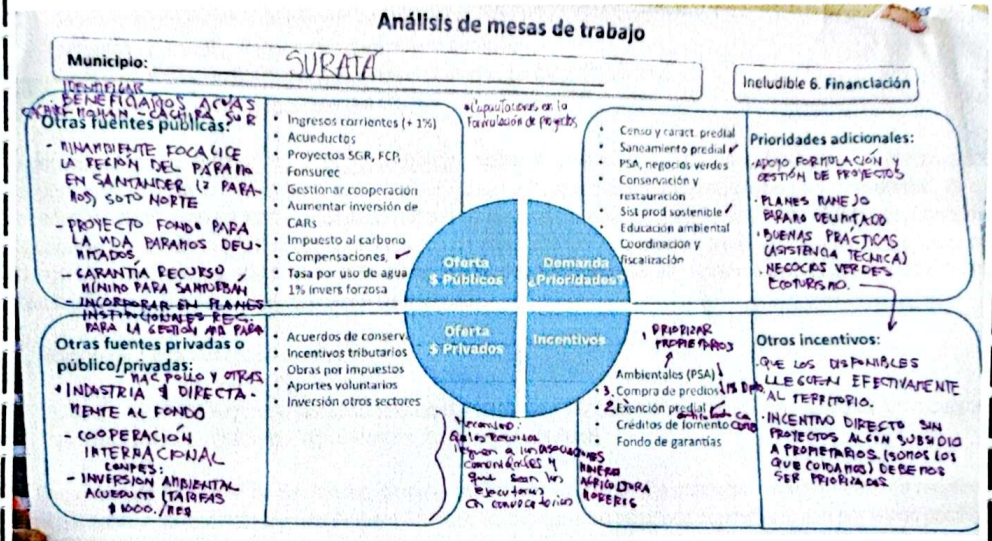 Análisis de mesas de trabajo
Municipio: SURATA
Ineludible 6. Financiación
IDENTIFICAR
BENEFICIARIOS AGUAS
CACHIRA SUR
Otras fuentes públicas:
- MINAMBIENTE FOCALICE
LA REGIÓN DEL PÁRAMO
EN SANTANDER (2 PARA-
MOS) SOTO NORTE
- PROYECTO FONDO PARA
LA VIDA PARAMOS DELI-
MITADOS
- GARANTÍA RECURSO
MÍNIMO PARA SANTURBÁN
- INCORPORAR EN PLANES
INSTITUCIONALES REC.
PARA LA GESTIÓN PARA
• Ingresos corrientes (+ 1%)
• Acueductos
• Proyectos SGR, FCP,
Fonsurec
• Gestionar cooperación
• Aumentar inversión de
CARs
• Impuesto al carbono
• Compensaciones, ✓
• Tasa por uso de agua
• 1% Invers forzosa
• Capacitaciones en la
Formulación de proyectos
Oferta
$ Públicos
Demanda
¿Prioridades?
Oferta
$ Privados
Incentivos
• Censo y caract. predial
• Saneamiento predial ✓
• PSA, negocios verdes
• Conservación y
restauración
• Sist prod sostenible ✓
• Educación ambiental
• Coordinación y
fiscalización
Prioridades adicionales:
APOYO FORMULACIÓN Y
GESTIÓN DE PROYECTOS
• PLANES MANEJO
PÁRAMO DELIMITADO
• BUENAS PRÁCTICAS
(ASISTENCIA TECNICA)
NEGOCIOS VERDES
ECOTURISMO.
Otras fuentes privadas o
público/privadas:
- MAC POLLO Y OTRAS
• INDUSTRIA $ DIRECTA-
MENTE AL FONDO
- COOPERACIÓN
INTERNACIONAL
CONPES:
- INVERSION AMBIENTAL
ACUEDUCTO (TARIFAS
$1000./MES
• Acuerdos de conserv
• Incentivos tributarios
• Obras por impuestos
• Aportes voluntarios
• Inversión otros sectores
Mecanismo:
Que los Recursos
lleguen a
comunidades y
que sean los
ejecutores
MINERO
AGRICULTURA
• PRIORIZAR
PROPIETARIOS
Ambientales (PSA)
3. Compra de predios
2. Exención predial
Créditos de fomento
Fondo de garantías
Otros incentivos:
QUE LOS DISPONIBLES
LLEGUEN EFECTIVAMENTE
AL TERRITORIO.
• INCENTIVO DIRECTO SIN
PROYECTOS ALGÚN SUBSIDIO
A PROPIETARIOS. (SOMOS LOS
QUE CUIDAMOS) DEBEMOS
SER PRIORIZADOS